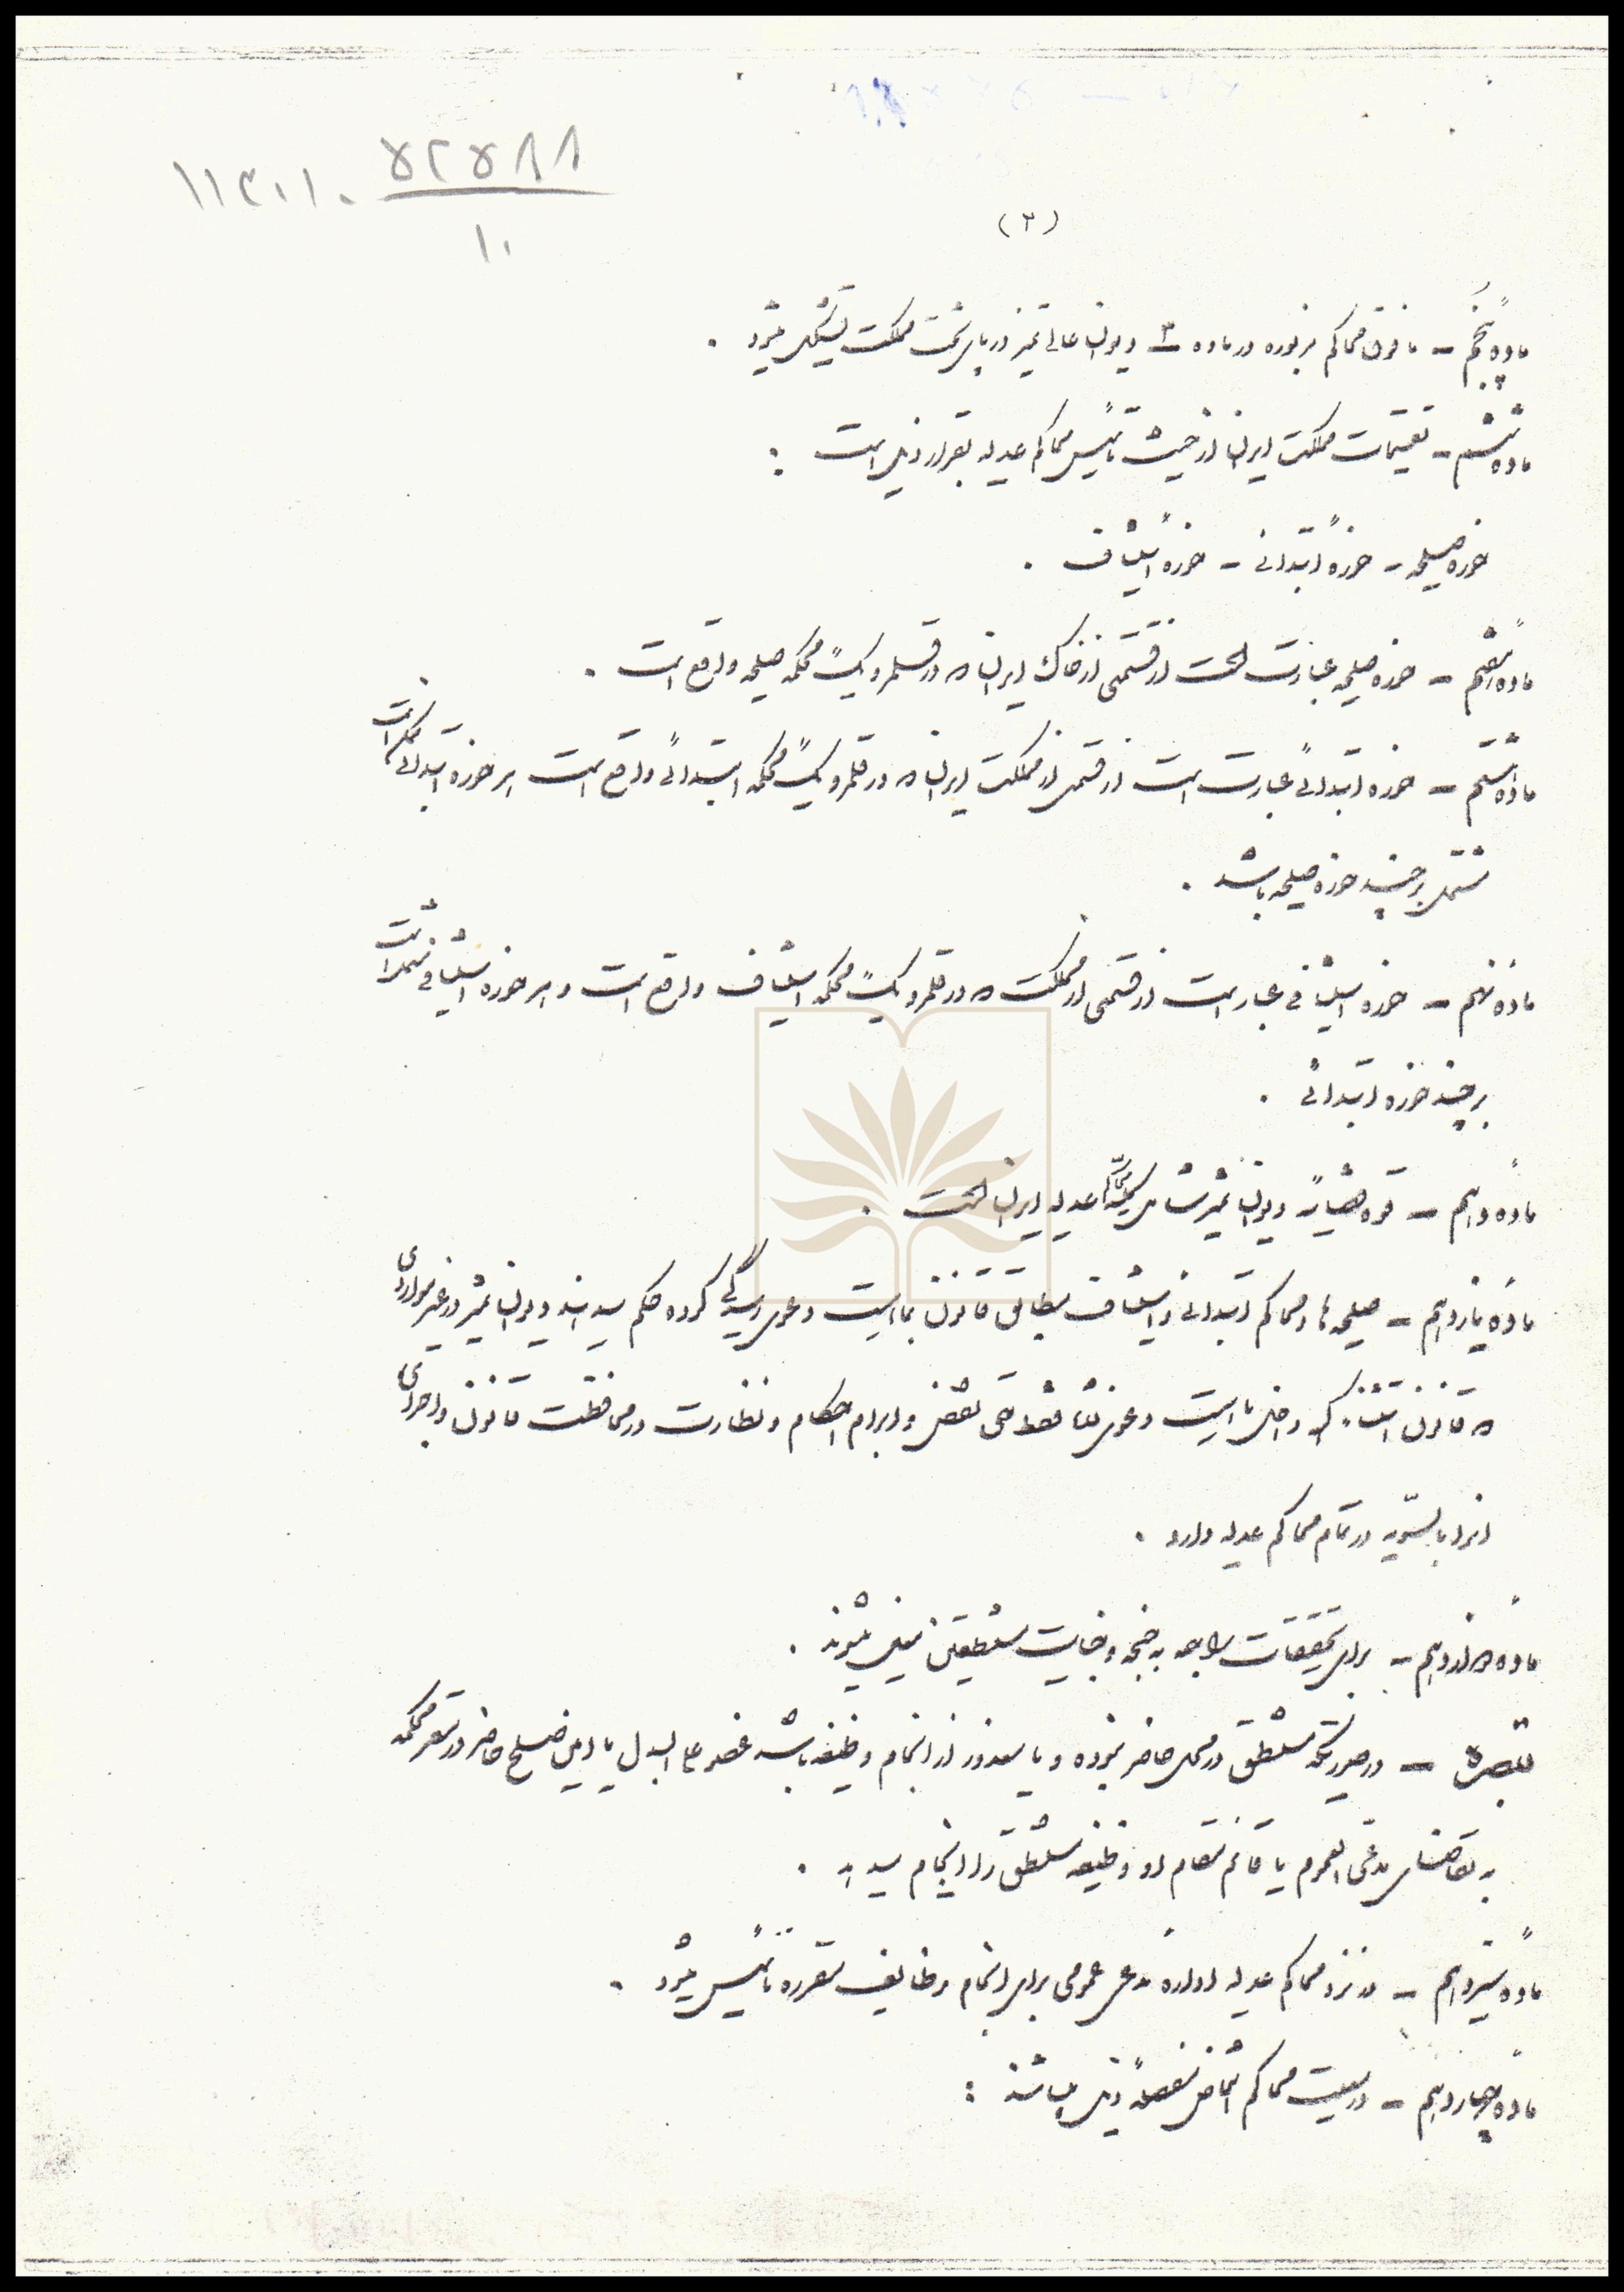 ۵۲۵۸۸
۱۱۳۰۱۰
۱۰
(۲)
مادهٔ پنجم – مافوق محاکم مزبوره در ماده ۳ دیوان عالی تمیز در پای تخت مملکت تشکیل میشود .
ماده ششم – تقسیمات مملکت ایران از حیث تأسیس محاکم عدلیه بقرار ذیل است :
حوزه صلحیه – حوزهٔ ابتدائی – حوزهٔ استیناف .
مادهٔ هفتم – حوزه صلحیه عبارت است از قسمتی از خاک ایران که در قلمرو یک محکمه صلحیه واقع است .
ماده هشتم – حوزه ابتدائی عبارت است از قسمتی از مملکت ایران که در قلمرو یک محکمه ابتدائی واقع است هر حوزه ابتدائی ممکن است
مشتمل بر چند حوزه صلحیه باشد .
ماده نهم – حوزه استینافی عبارت است از قسمتی از مملکت که در قلمرو یک محکمه استیناف واقع است و هر حوزه استینافی مشتمل است
بر چند حوزه ابتدائی .
مادهٔ دهم – قوه قضائیه دیوان تمیز شامل کلیه محاکم عدلیه ایران است .
مادهٔ یازدهم – صلحیه ها و محاکم ابتدائی و استیناف مطابق قانون بماهیت دعوی رسیدگی کرده حکم میدهند و دیوان تمیز در غیر مواردی
که قانون استثنا کرده داخل ماهیت دعوی نشده فقط حق نقض و ابرام احکام و نظارت در محافظت قانون و اجرای
آنرا بالسویه در تمام محاکم عدلیه دارد .
مادهٔ دوازدهم – برای تحقیقات راجعه به جنحه و جنایت مستنطقین معین میشوند .
تبصره – در صورتیکه مستنطق در محل حاضر نبوده و یا معذور از انجام وظیفه باشد عضو علی البدل یا امین صلح حاضر در مقر محکمه
به تقاضای مدعی العموم یا قائم مقام او وظیفه مستنطق را انجام میدهد .
مادهٔ سیزدهم – در نزد محاکم عدلیه ادارهٔ مدعی عمومی برای انجام وظایف مقرره تأسیس میشود .
مادهٔ چهاردهم – در معیت محاکم اشخاص مفصلهٔ ذیل میباشند :